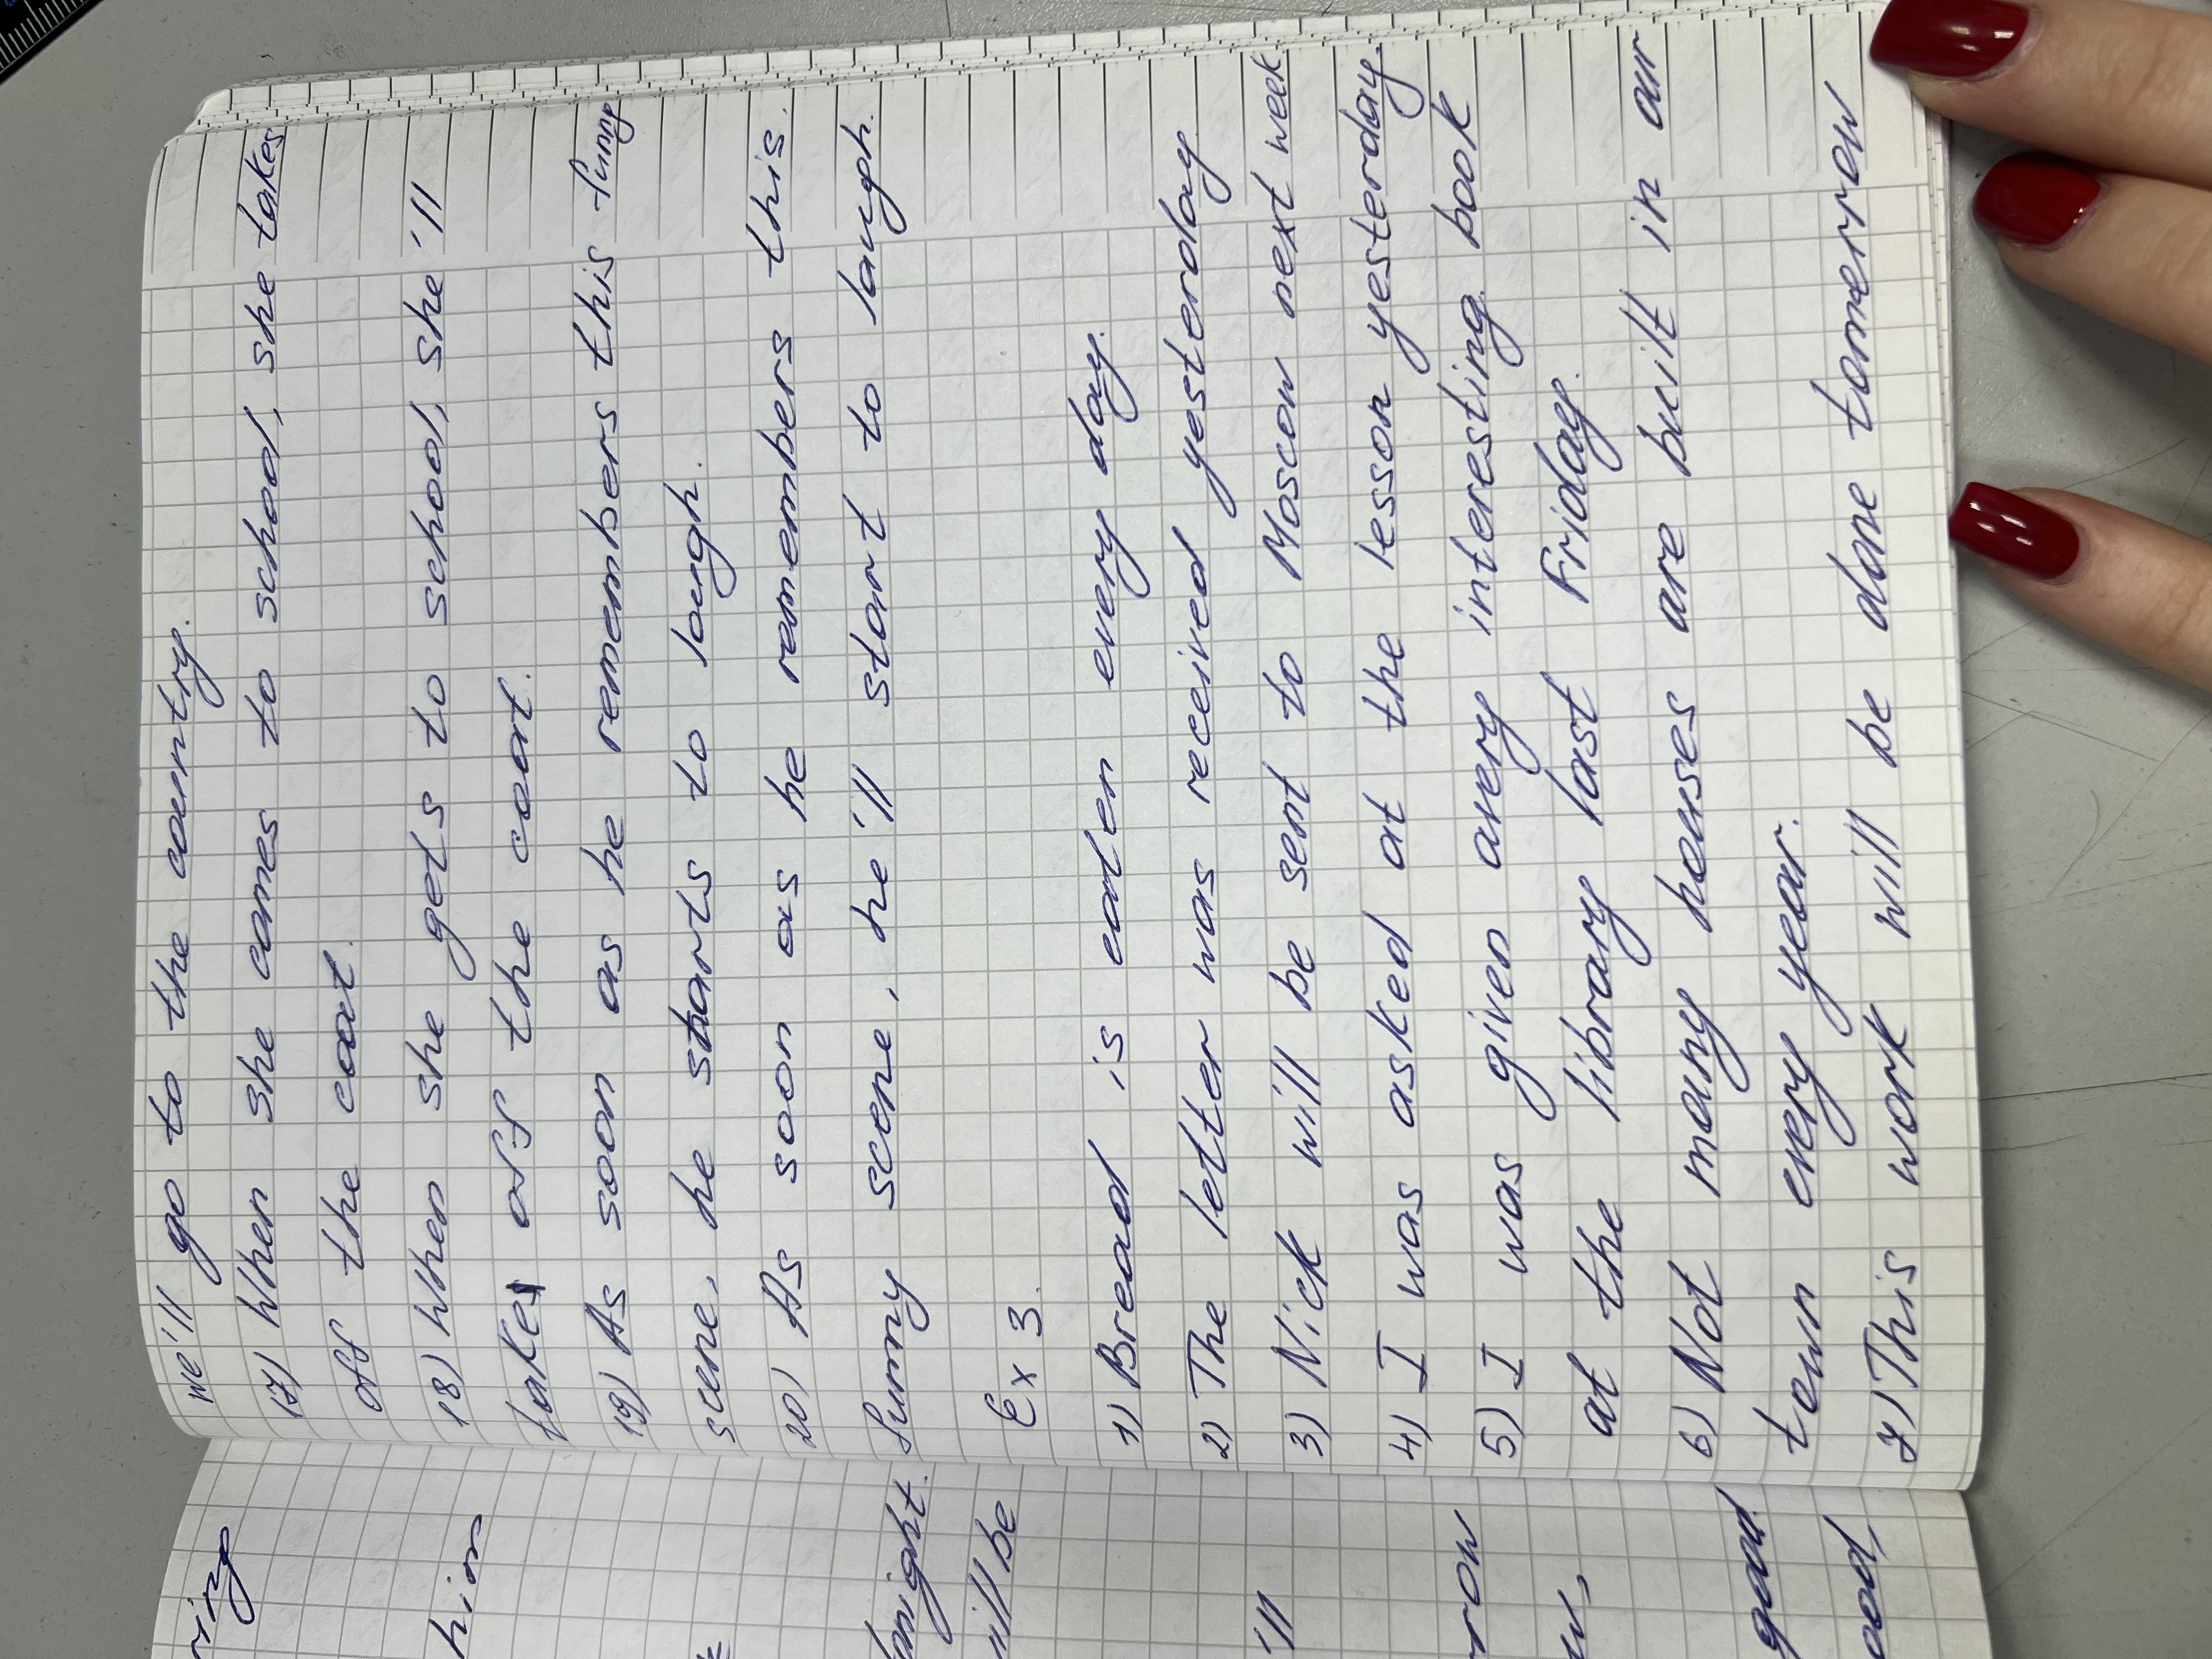 we'll go to the country.
17) When she comes to school, she takes
off the coat.
18) When she gets to school, she'll
take off the coat.
19) As soon as he remembers this funny
scene, he starts to laugh.
20) As soon as he remembers this
funny scene, he'll start to laugh.
Ex 3.
1) Bread is eaten every day.
2) The letter was received yesterday.
3) Nick will be sent to Moscow next week
4) I was asked at the lesson yesterday.
5) I was given avery interesting book
at the library last Friday.
6) Not many houses are built in our
town every year.
7) This work will be done tomorrow
ring
him
tonight.
will be
'll
row
w,
good
ood,